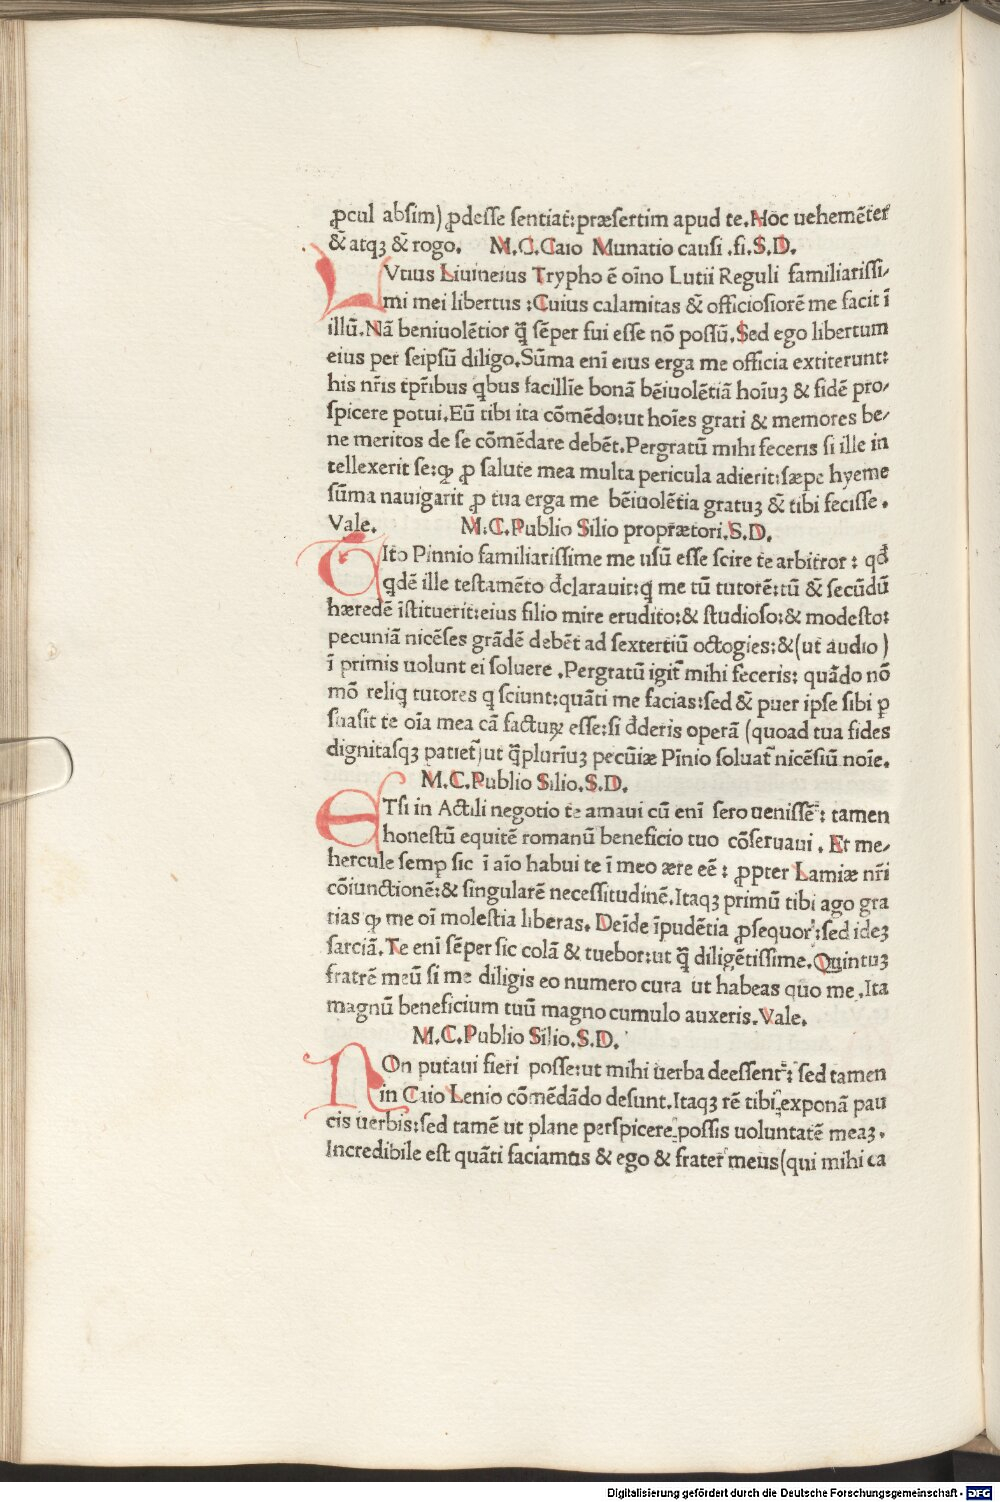 ꝓcul absim) ꝓdesse sentiat̄: præsertim apud te. Hoc uehemēter
& atqꝫ & rogo. M.C.Caio Munatio causi .fi.S.D.
LVtius Liuineius Trypho ē oīno Lutii Reguli familiarissi/
mi mei libertus : Cuius calamitas & officiosiorē me facit ī
illū. Nā beniuolētior q̄ sēper fui esse nō possū. Sed ego libertum
eius per seipsū diligo. Sūma enī eius erga me officia extiterunt:
his nr̄is tp̄ribus qbus facillīe bonā bēiuolētiā hoīuꝫ & fidē pro/
spicere potui. Eū tibi ita cōmēdo: ut hoīes grati & memores be/
ne meritos de se cōmēdare debēt. Pergratū mihi feceris si ille in
tellexerit se: ꝙ ꝓ salute mea multa pericula adierit: sæpe hyeme
sūma nauigarit ꝓ tua erga me bēiuolētia gratuꝫ & tibi fecisse.
Vale. M.C.Publio Silio proprætori.S.D.
TIto Pinnio familiarissime me usū esse scire te arbitror : qđ
qdē ille testamēto đclarauit: q me tū tutorē: tū & secūdū
hæredē īstituerit: eius filio mire erudito: & studioso: & modesto:
pecuniā nicēses grādē debēt ad sextertiū octogies: & (ut audio )
ī primis uolunt ei soluere . Pergratū igit̄ mihi feceris: quādo nō
mō reliq tutores q sciunt: quāti me facias: sed & puer ipse sibi ꝑ
suasit te oīa mea cā facturꝫ esse: si đderis operā (quoad tua fides
dignitasqꝫ patiet̄) ut q̄plurīuꝫ pecūiæ Pīnio soluat̄ nicēsiū noīe.
M.C.Publio Silio.S.D.
ETsi in Actili negotio te amaui cū enī sero uenissē: tamen
honestū equitē romanū beneficio tuo cōseruaui . Et me/
hercule semp sic ī aīo habui te ī meo ære eē : ꝓpter Lamiæ nr̄i
cōiunctionē: & singularē necessitudinē. Itaqꝫ primū tibi ago gra
tias ꝙ me oī molestia liberas. Deīde īpudētia ꝓsequor: sed ideꝫ
sarciā. Te enī sēper sic colā & tuebor: ut q̄ diligētissime. Quintuꝫ
fratrē meū si me diligis eo numero cura ut habeas quo me . Ita
magnū beneficium tuū magno cumulo auxeris. Vale.
M.C.Publio Silio.S.D.
NOn putaui fieri posse: ut mihi uerba deessent: sed tamen
in Caio Lenio cōmēdādo desunt. Itaqꝫ rē tibi exponā pau
cis uerbis: sed tamē ut plane perspicere possis uoluntatē meaꝫ.
Incredibile est quāti faciamus & ego & frater meus (qui mihi ca
Digitalisierung gefördert durch die Deutsche Forschungsgemeinschaft - DFG